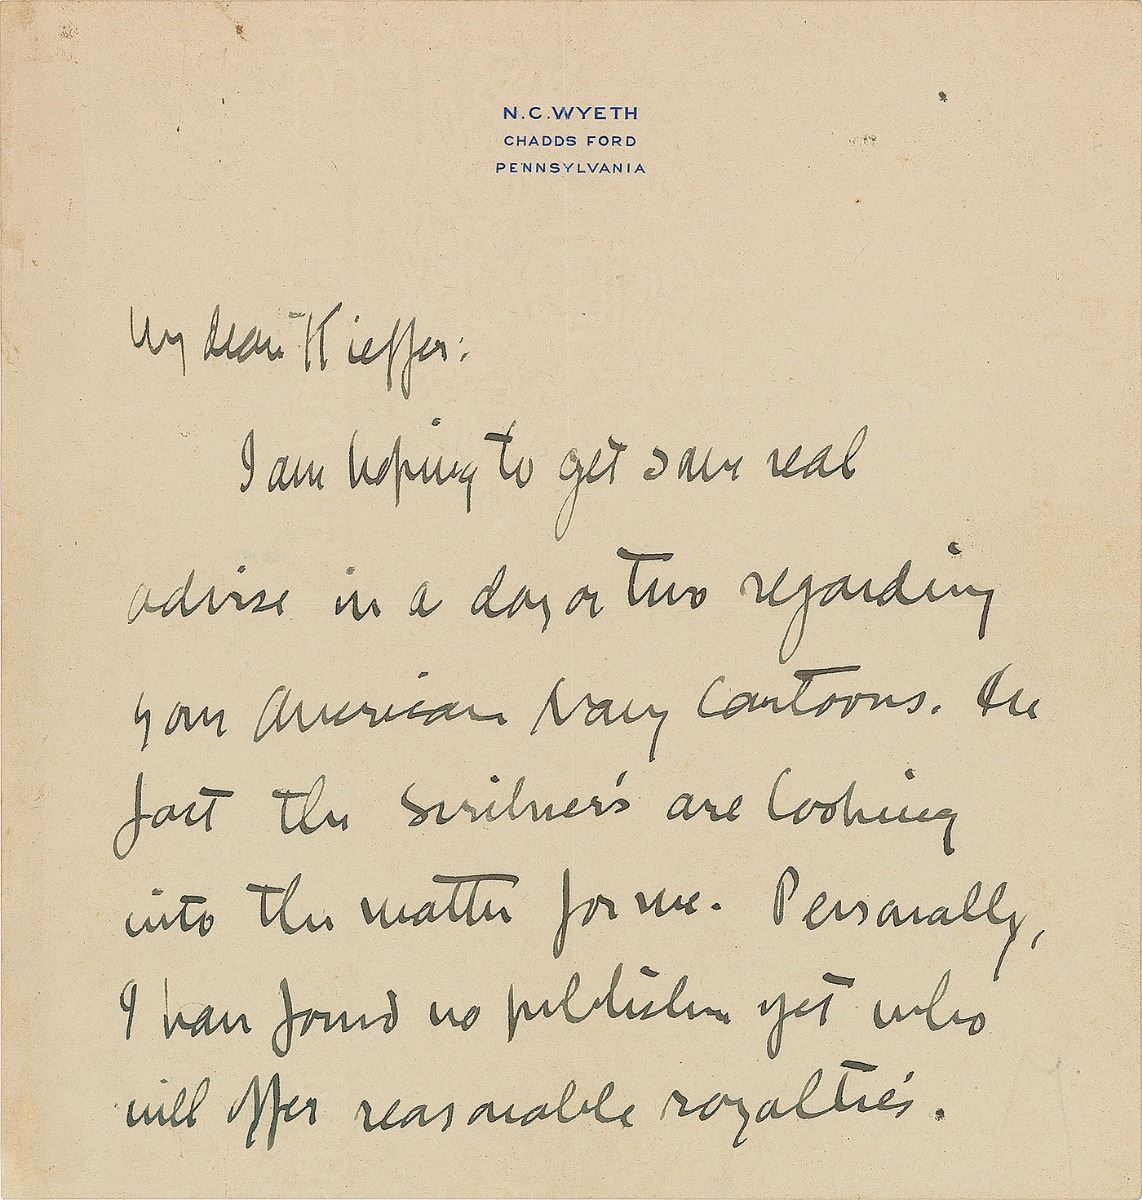 N.C. WYETH
CHADDS FORD
PENNSYLVANIA
My dear Kieffer:
I am hoping to get some real
advise in a day or two regarding
your American Navy Cartoons. In
fact the Scribner's are looking
into the matter for me. Personally,
I have found no publisher yet who
will offer reasonable royalties.